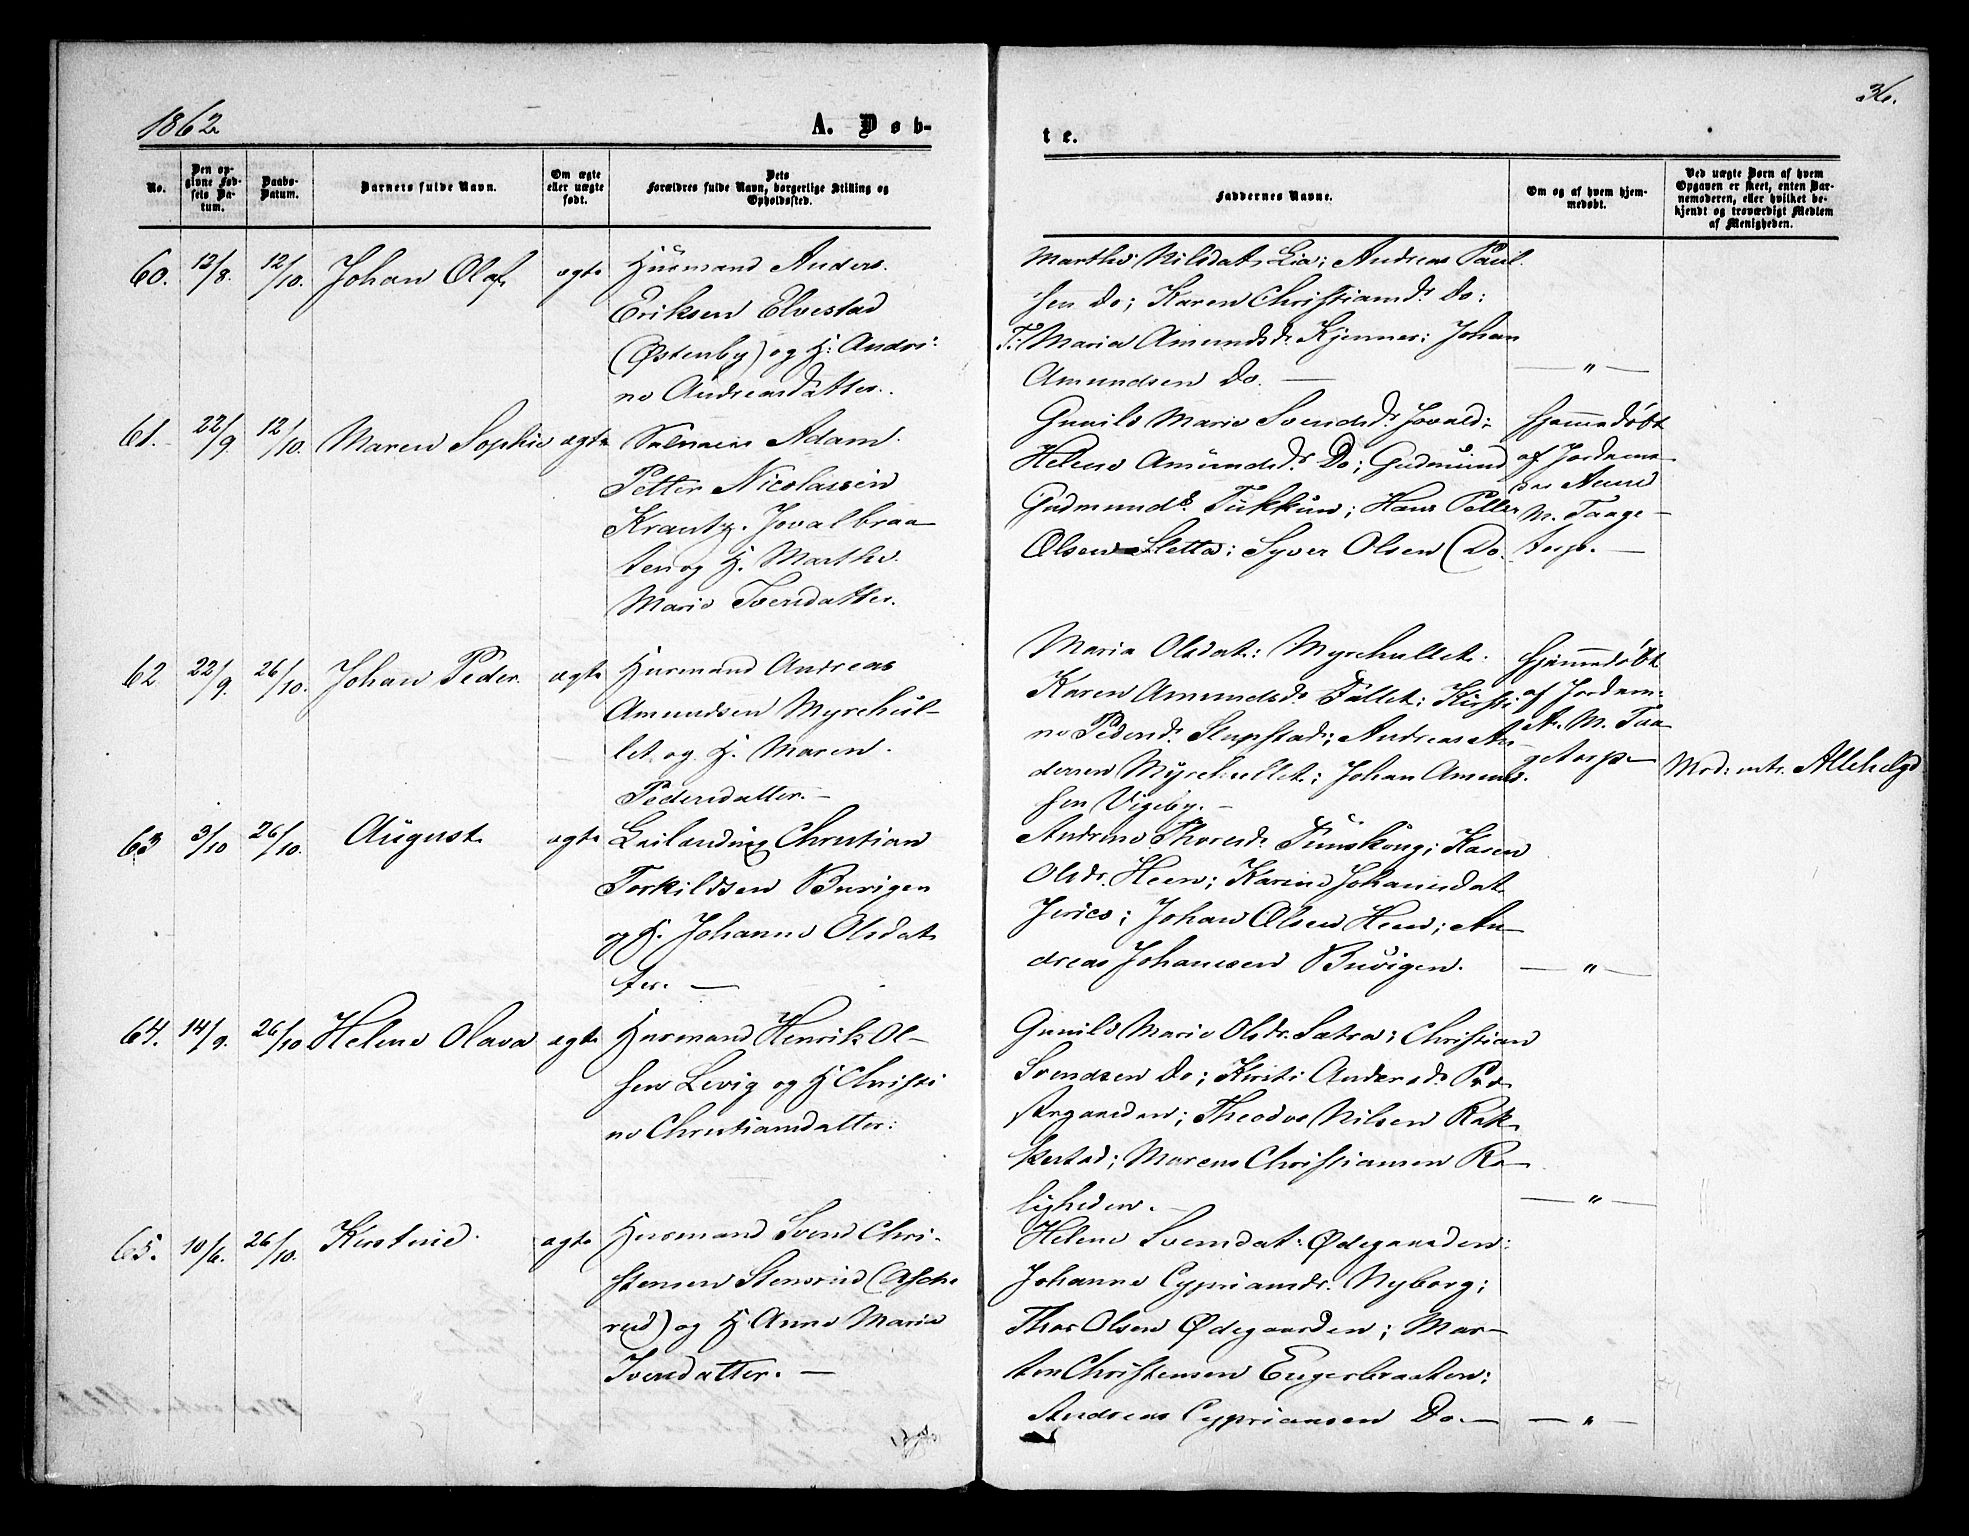 1862
A. Døb-
te.
36.
No.
Den op-
givne Fød-
sels Da-
tum.
Daabs-
Datum.
Barnets fulde Navn.
Om ægte
eller uægte
født.
Dets
Forældres fulde Navn, borgerlige Stilling og
Opholdssted.
Faddernes Navne.
Om og af hvem hjem-
medøbt.
Ved uægte Børn af hvem
Opgaven er skeet, enten Bar-
nemoderen, eller hvilket be-
kjendt og troværdigt Medlem
af Menigheden.
60. 13/8. 12/10. Johan Olaf. ægte
Huusmand Anders
Eriksen Elvestad
(Østenby) og H. Andri-
ne Andreasdatter.
Marthe Nilsdat. Lia; Andreas Paul
sen Do; Karen Christiansdr. Do;
T: Maria Amundsdr. Kjennes; Johan
Amundsen Do. —
— " —
61. 22/9. 12/10. Maren Sophie ægte
Adam
Petter Nicolaisen
Krantz. Jovalbraa-
ten og H. Marthe
Marie Iversdatter.
Gunild Marie Svendsdr. Jovald;
Helene Amundsdr. Do; Gudmund
Gudmunds. Tukkun; Hans Petter
Olsen Sletta; Syver Olsen (Do.
Hjemmedøbt
af Jordemo-
M. Taage-
torp. —
62 22/9. 26/10. Johan Peder. ægte
Husmand Andreas
Amundsen Myrehul-
let og H. Maren
Pedersdatter. —
Maria Olsdat: Myrehullet.
Karen Amundsdr. Fallet; Kirsti-
ne Pedersdr. Slupstad; Andreas An-
dersen Myrehullet; Johan Amund-
sen Vigeby. —
Hjemmedøbt
af Jordem:
A. M. Taa-
getorp —
Mod: intr. Allehelgd
63 3/10 26/10. August ægte
Leilænding Christian
Torkildsen Buvigen
og H. Johanne Olsdat
ter. —
Andrine Thoresdr. Tunskoug; Karen
Olsdr. Heen; Karine Johannesdat
Jerico; Johan Olsen Heen; An-
dreas Johannesen Buvigen.
— " —
64. 14/9. 26/10 Helene Olava ægte
Husmand Henrik Ol-
sen Levig og H Christi
ne Christiansdatter:
Gunild Marie Olsdr. Satra; Christian
Svendsen Do; Kirsti Andersdr. Præ-
stegaarden; Theodor Nilsen Rak-
kestad; Marens Christiansen Ro-
ligheden. —
— " —
65. 10/6. 26/10. Kirstine. ægte
Husmand Svend Chri-
stensen Stensrud (Asche
rud) og H Anne Marie
Iversdatter. —
Helene Svendsdat: Ødegaarden;
Johanne Cypriansdr. Nyborg;
Thor Olsen Ødegaarden; Mar-
ten Christensen Engerbraaten;
Andreas Cypriansen Do. —
— " —